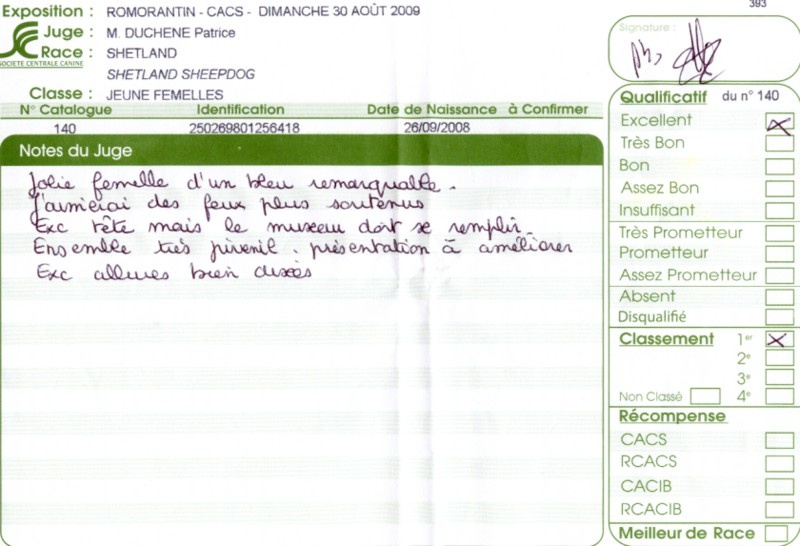 Exposition : ROMORANTIN - CACS - DIMANCHE 30 AOÛT 2009
Juge : M. DUCHENE Patrice
Race : SHETLAND
SHETLAND SHEEPDOG
SOCIETE CENTRALE CANINE
Classe : JEUNE FEMELLES
N° Catalogue Identification Date de Naissance à Confirmer
140 250269801256418 26/09/2008
Notes du Juge
Jolie femelle d'un bleu remarquable.
J'aimerai des feux plus soutenus
Exc tête mais le museau doit se remplir.
Ensemble très juvenil. présentation à améliorer
Exc allures bien aisées
393
Signature :
Qualificatif du n° 140
Excellent
Très Bon
Bon
Assez Bon
Insuffisant
Très Prometteur
Prometteur
Assez Prometteur
Absent
Disqualifié
Classement 1er
2e
3e
Non Classé 4e
Récompense
CACS
RCACS
CACIB
RCACIB
Meilleur de Race